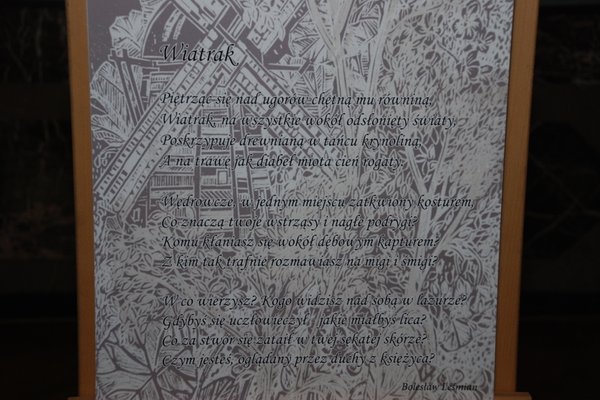 Wiatrak
Piętrząc się nad ugorów chętną mu równiną,
Wiatrak, na wszystkie wokół odsłonięty światy,
Poskrzypuje drewnianą w tańcu krynoliną,
A na trawę jak diabeł miota cień rogaty.
Wędrowcze, w jednym miejscu zatkwiony kosturem,
Co znaczą twoje wstrząsy i nagłe podrygi?
Komu kłaniasz się wokół dębowym kapturem?
Z kim tak trafnie rozmawiasz na migi i śmigi?
W co wierzysz? Kogo widzisz nad sobą w lazurze?
Gdybyś się uczłowieczył, jakie miałbyś lica?
Co za stwór się zataił w twej sękatej skórze?
Czym jesteś, oglądany przez duchy z księżyca?
Bolesław Leśmian